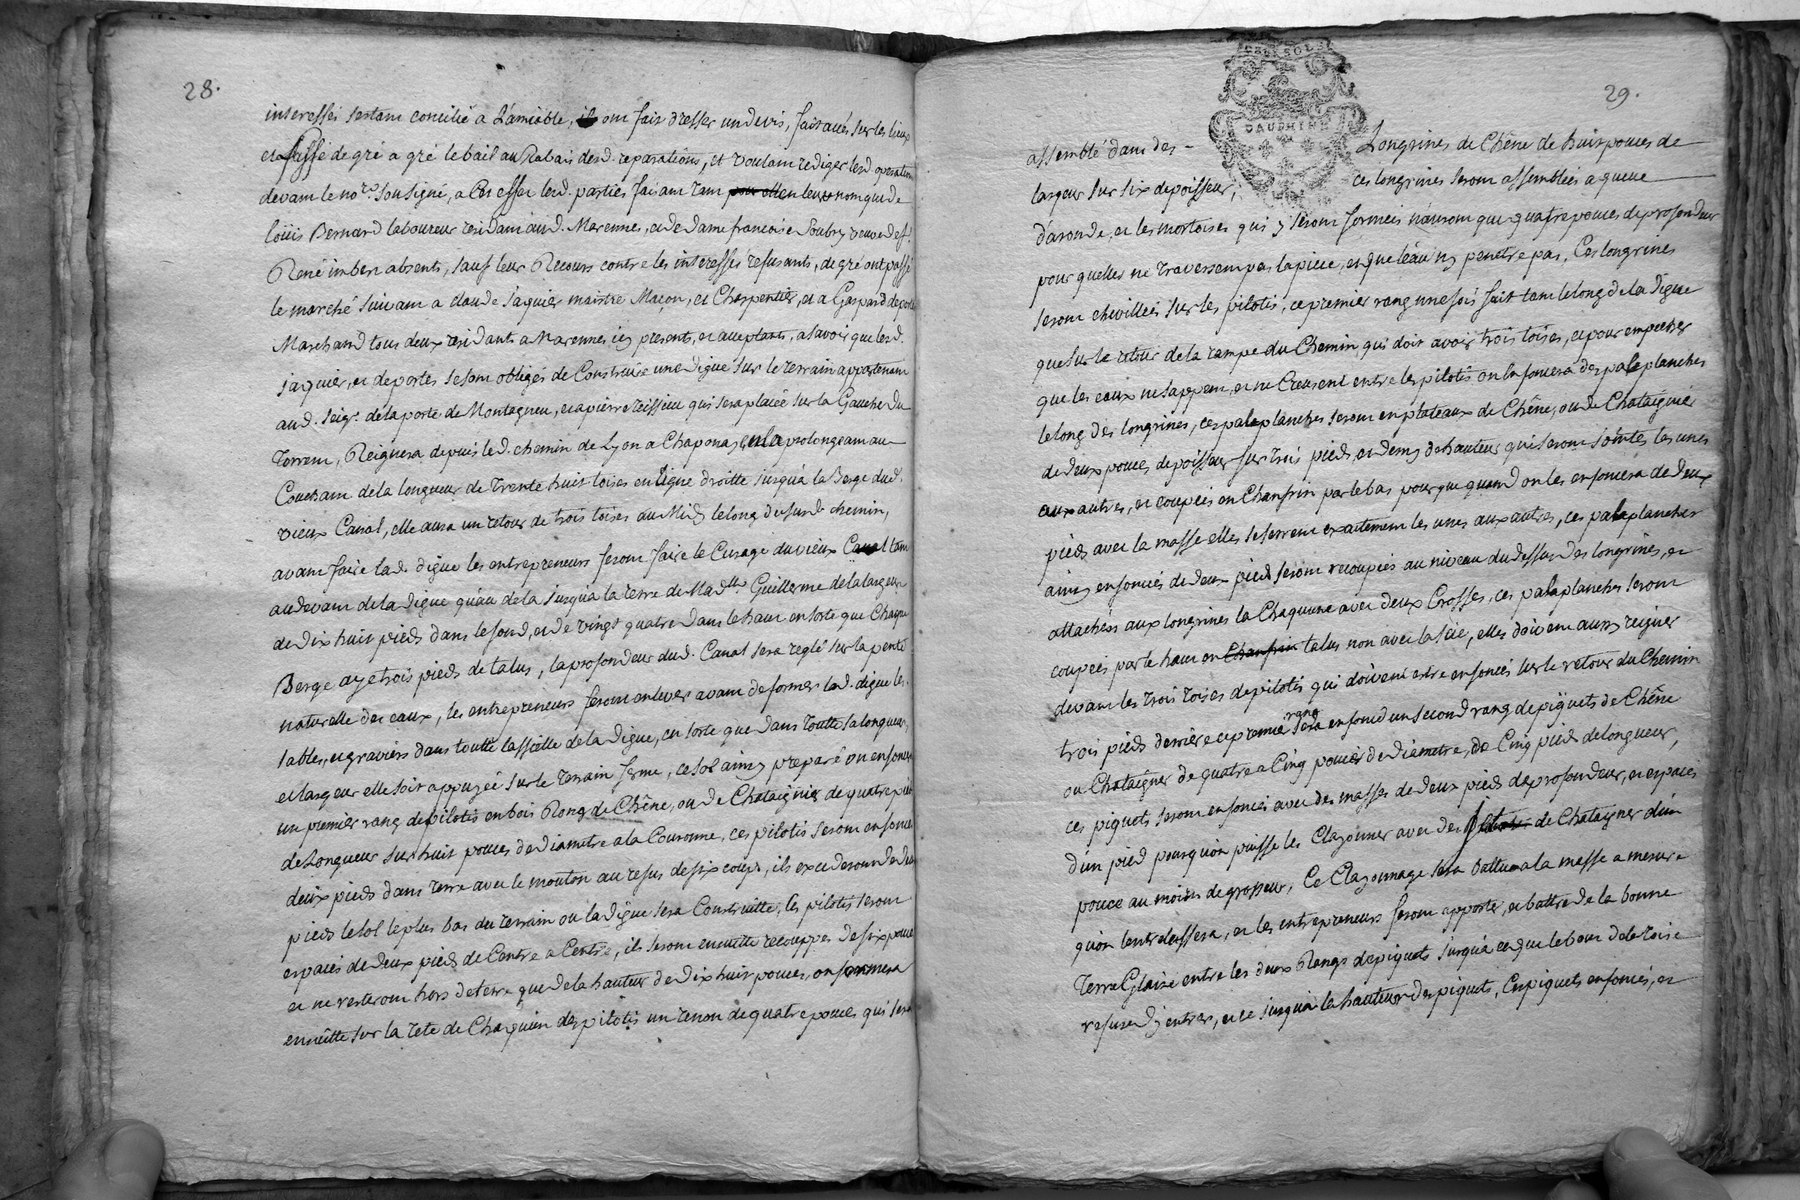 28.
interessés sestant concilié a L'amiable, ont fait dresser un devis, fait avec sur les lieux
et passé de gré a gré le bail au Rabais desd. reparations, et voulant rediger lesd. operations
devant le no.re sousigné, a Cet effet lesd. parties faisant tant en leurs nom que de
loüis Bernard laboureur residant aud. Marennes, et de dame francoise Soubry veuve de s.r
René imbert absents, sauf leur Recours contre les interessés refusants, de gré ont passé
le marché suivant a claude jaquier maistre Maçon, et Charpentier, et a Gaspard deportes
Marchand tous deux residants a Marennes icy presents, et acceptants, a savoir que lesd.
jaquier, et deportes se sont obligés de Construire une digue sur le terrain appartenant
aud. seig.r de la porte de Montagneu, et a pierre teissieu qui sera placée sur la Gauche du
Torrent, Reignera depuis led. chemin de Lyon a Chaponay, en la prolongeant au
Couchant de la longueur de trente huit toises en Ligne droitte jusqu'a la Berge dud.
vieux Canal, elle aura un retour de trois toises au Midy le long dususd. chemin,
avant faire lad. digue les entrepreneurs feront faire le Curage du vieux Canal tant
audevant de la digue qu'au dela jusqua la terre de Mad.lle Guillerme de la largeur
de dix huit pieds dans le fond, et de vingt quatre dans le haut en sorte que Chaque
Berge aye trois pieds de talus, la profondeur dud. Canal sera reglé sur la pente
naturelle des eaux, les entrepreneurs feront enlever avant de former lad. digue les
sables, et graviers dans toutte lassiette de la digue, en sorte que dans toutte sa longueur,
et largeur elle soit appuyée sur le terrain ferme, ce sol ainsy preparé on enfoncera
un premier rang de pilotis en bois Rong de Chêne, ou de Chataignier de quatre pieds
de Longueur sur huit pouces de diametre a la Couronne, ces pilotis seront enfoncés
deux pieds dans terre avec le mouton au refus de six coups, ils excederont de deux
pieds le sol le plus bas du terrain ou la digue sera Construitte, les pilotis seront
espacés de deux pieds de Centre a Centre, ils seront ensuitte recouppés de six pouces
et ne resteront hors de terre que de la hauteur de dix huit pouces, on formera
ensuitte sur la tete de Chaquun des pilotis un tenon de quatre pouces qui sera
29.
assemblé dans des - Longrines de Chêne de huit pouces de
largeur sur six depoisseur; ces longrines seront assemblées a queue
d'aronde, et les mortoises qui y seront formées n'auront que quatre pouces de profondeur
pour quelles ne traversent pas la piece, et que l'eau n'y penetre pas, Ces longrines
seront chevillées sur les pilotis, ce premier rang une fois fait tant le long de la digue
que sur le retour de la rampe du Chemin qui doit avoir trois toises, et pour empecher
que les eaux ne sappent, et ne Creusent entre les pilotis on enfoncera des paleplanches
le long des longrines, ces paleplanches seront en plateaux de Chêne, ou de Chataignier
de deux pouces depoisseur sur trois pieds, et demy de hauteur qui seront jointes les unes
aux autres, et coupées en Chanfrin par le bas pour que quand on les enfoncera de deux
pieds avec la masse elles se serrent exactement les unes aux autres, ces paleplanches
ainsy enfoncées de deux pieds seront recoupées au niveau du dessus des longrines, et
attachées aux longrines la Chaquune avec deux Crosses, ces palaplanches seront
coupées par le haut en Chanfrin talus non avec la scie, elles doivent aussy reigner
devant les trois toises de pilotis qui doivent estre enfoncés sur le retour du Chemin
trois pieds derriere ce premier rang sera enfoncé un second rang de piquets de Chêne
ou Chataigner de quatre a Cinq pouces de diametre, de Cinq pieds de longueur,
ces piquets seront enfoncés avec des masses de deux pieds de profondeur, et espacés
d'un pied pour qu'on puisse les Clayonner avec des de Chataigner d'un
pouce au moins de grosseur, Ce Clayonnage sera battu a la masse a mesure
qu'on l'entrelassera, et les entrepreneurs feront apporter, et battre de la bonne
Terre Glaise entre les deux Rangs de piquets jusqu'a ce que le bout de la toise
refuse d'y entrer, et ce jusqu'a la hauteur des piquets, Ces piquets enfoncés, et